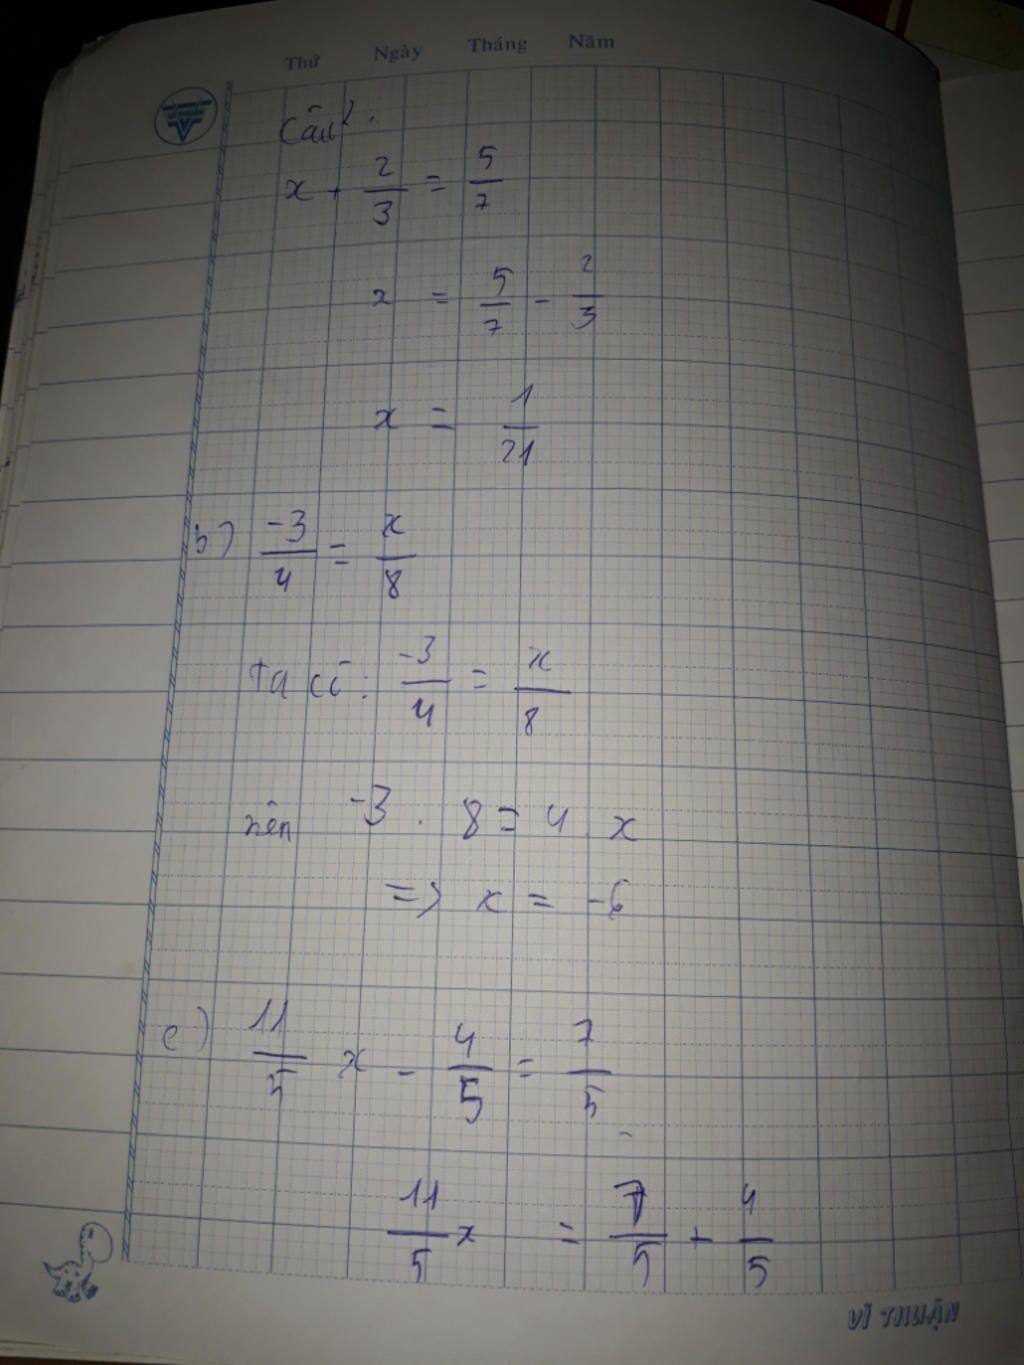 Thứ Ngày Tháng Năm
Câu 2.
x + 2/3 = 5/7
x = 5/7 - 2/3
x = 1/21
b) -3/4 = x/8
Ta có: -3/4 = x/8
nên -3 . 8 = 4 . x
=> x = -6
c) 11/5 x - 4/5 = 7/5
11/5 x = 7/5 + 4/5
VĨ THUẬN